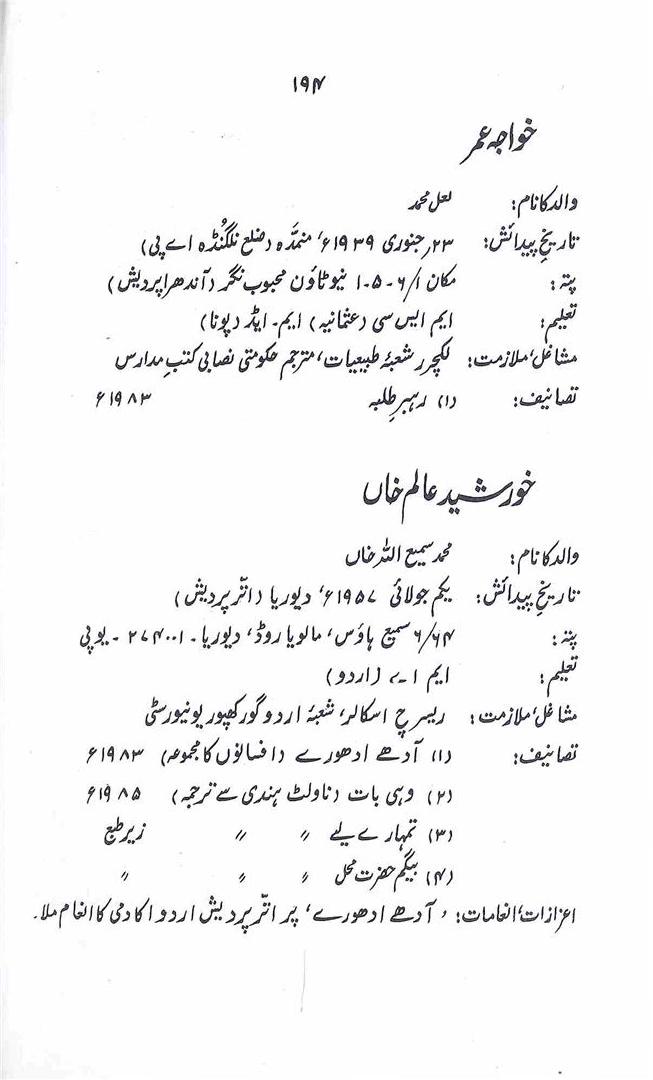 ۱۹۴
خواجہ عمر
والد کا نام: لعل محمد
تاریخِ پیدائش: ۲۳؍ جنوری ۱۹۳۹ء، منمّدہ (ضلع نلگنڈہ اے پی)
پتہ: مکان ۶/۱ - ۵ - ۱ نیو ٹاؤن محبوب نگر (آندھرا پردیش)
تعلیم: ایم ایس سی (عثمانیہ) ایم۔ ایڈ (پونا)
مشاغل؍ملازمت: لکچرر شعبۂ طبیعیات، مترجم حکومتی نصابی کتبِ مدارس
تصانیف: (۱) رہبرِ طلبہ ۱۹۸۳ء
خورشید عالم خاں
والد کا نام: محمد سمیع اللہ خاں
تاریخِ پیدائش: یکم جولائی ۱۹۵۷ء، دیوریا (اتّر پردیش)
پتہ: ۶/۶۴ سمیع ہاؤس، مالویا روڈ، دیوریا۔ ۲۷۴۰۰۱ ۔ یوپی
تعلیم: ایم اے (اردو)
مشاغل؍ملازمت: ریسرچ اسکالر، شعبۂ اردو گورکھپور یونیورسٹی
تصانیف: (۱) آدھے ادھورے (افسانوں کا مجموعہ) ۱۹۸۳ء
(۲) وہی بات (ناولٹ ہندی سے ترجمہ) ۱۹۸۵ء
(۳) تمہارے لیے 〃 〃 زیر طبع
(۴) بیگم حضرت محل 〃 〃 〃
اعزازات؍انعامات: ’آدھے ادھورے‘ پر اتّر پردیش اردو اکادمی کا انعام ملا۔